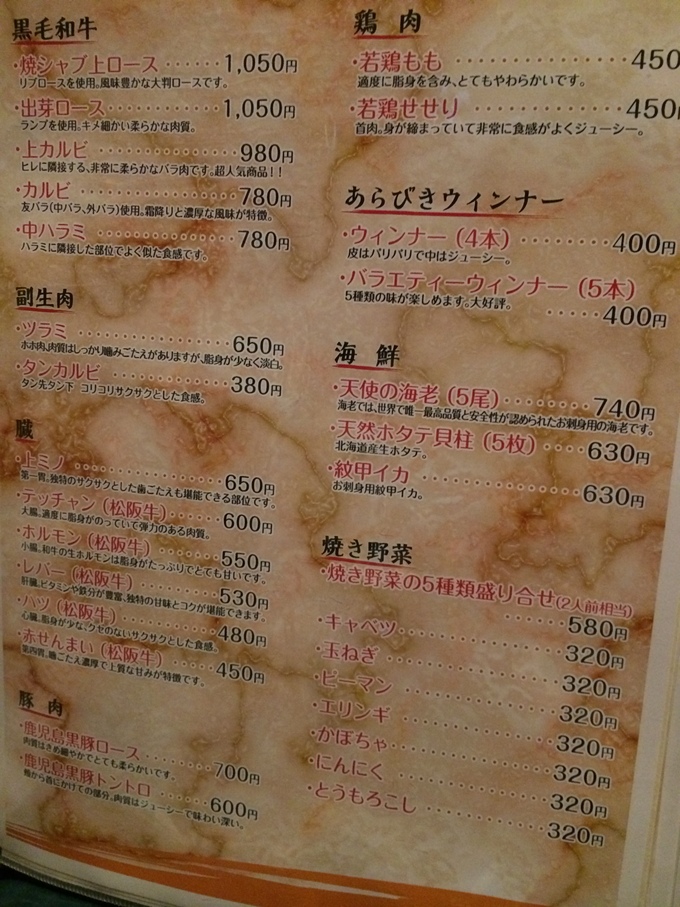 黒毛和牛
・焼シャブ上ロース ······ 1,050円
リブロースを使用。風味豊かな大判ロースです。
・出芽ロース ············ 1,050円
ランプを使用。キメ細かい柔らかな肉質。
・上カルビ ·············· 980円
ヒレに隣接する、非常に柔らかなバラ肉です。超人気商品!!
・カルビ ················ 780円
友バラ(中バラ、外バラ)使用。霜降りと濃厚な風味が特徴。
・中ハラミ ·············· 780円
ハラミに隣接した部位でよく似た食感です。
副生肉
・ツラミ ················ 650円
ホホ肉、肉質はしっかり噛みごたえがありますが、脂身が少なく淡白。
・タンカルビ ············ 380円
タン先タン下 コリコリサクサクとした食感。
臓
・上ミノ ················ 650円
第一胃。独特のサクサクとした歯ごたえも堪能できる部位です。
・テッチャン(松阪牛) ···· 600円
大腸。適度に脂身がのっていて弾力のある肉質。
・ホルモン(松阪牛) ······ 550円
小腸。和牛の生ホルモンは脂身がたっぷりでとても甘いです。
・レバー(松阪牛) ········ 530円
肝臓。ビタミンや鉄分が豊富、独特の甘味とコクが堪能できます。
・ハツ(松阪牛) ·········· 480円
心臓。脂身が少な、クセのないサクサクとした食感。
・赤せんまい(松阪牛) ···· 450円
第四胃。噛ごたえ濃厚で上質な甘みが特徴です。
豚肉
・鹿児島黒豚ロース ······ 700円
肉質はきめ細やかでとても柔らかいです。
・鹿児島黒豚トントロ ···· 600円
頬から首にかけての部分。肉質はジューシーで味わい深い。
鶏肉
・若鶏もも ·············· 450
適度に脂身を含み、とてもやわらかいです。
・若鶏せせり ············ 450円
首肉。身が締まっていて非常に食感がよくジューシー。
あらびきウィンナー
・ウィンナー(4本) ······ 400円
皮はパリパリで中はジューシー。
・バラエティーウィンナー(5本)
5種類の味が楽しめます。大好評。 ····· 400円
海鮮
・天使の海老(5尾) ······ 740円
海老では、世界で唯一最高品質と安全性が認められたお刺身用の海老です。
・天然ホタテ貝柱(5枚) ·· 630円
北海道産生ホタテ。
・紋甲イカ ·············· 630円
お刺身用紋甲イカ。
焼き野菜
・焼き野菜の5種類盛り合せ(2人前相当)
················ 580円
・キャベツ ·············· 320円
・玉ねぎ ················ 320円
・ピーマン ·············· 320円
・エリンギ ·············· 320円
・かぼちゃ ·············· 320円
・にんにく ·············· 320円
・とうもろこし ·········· 320円